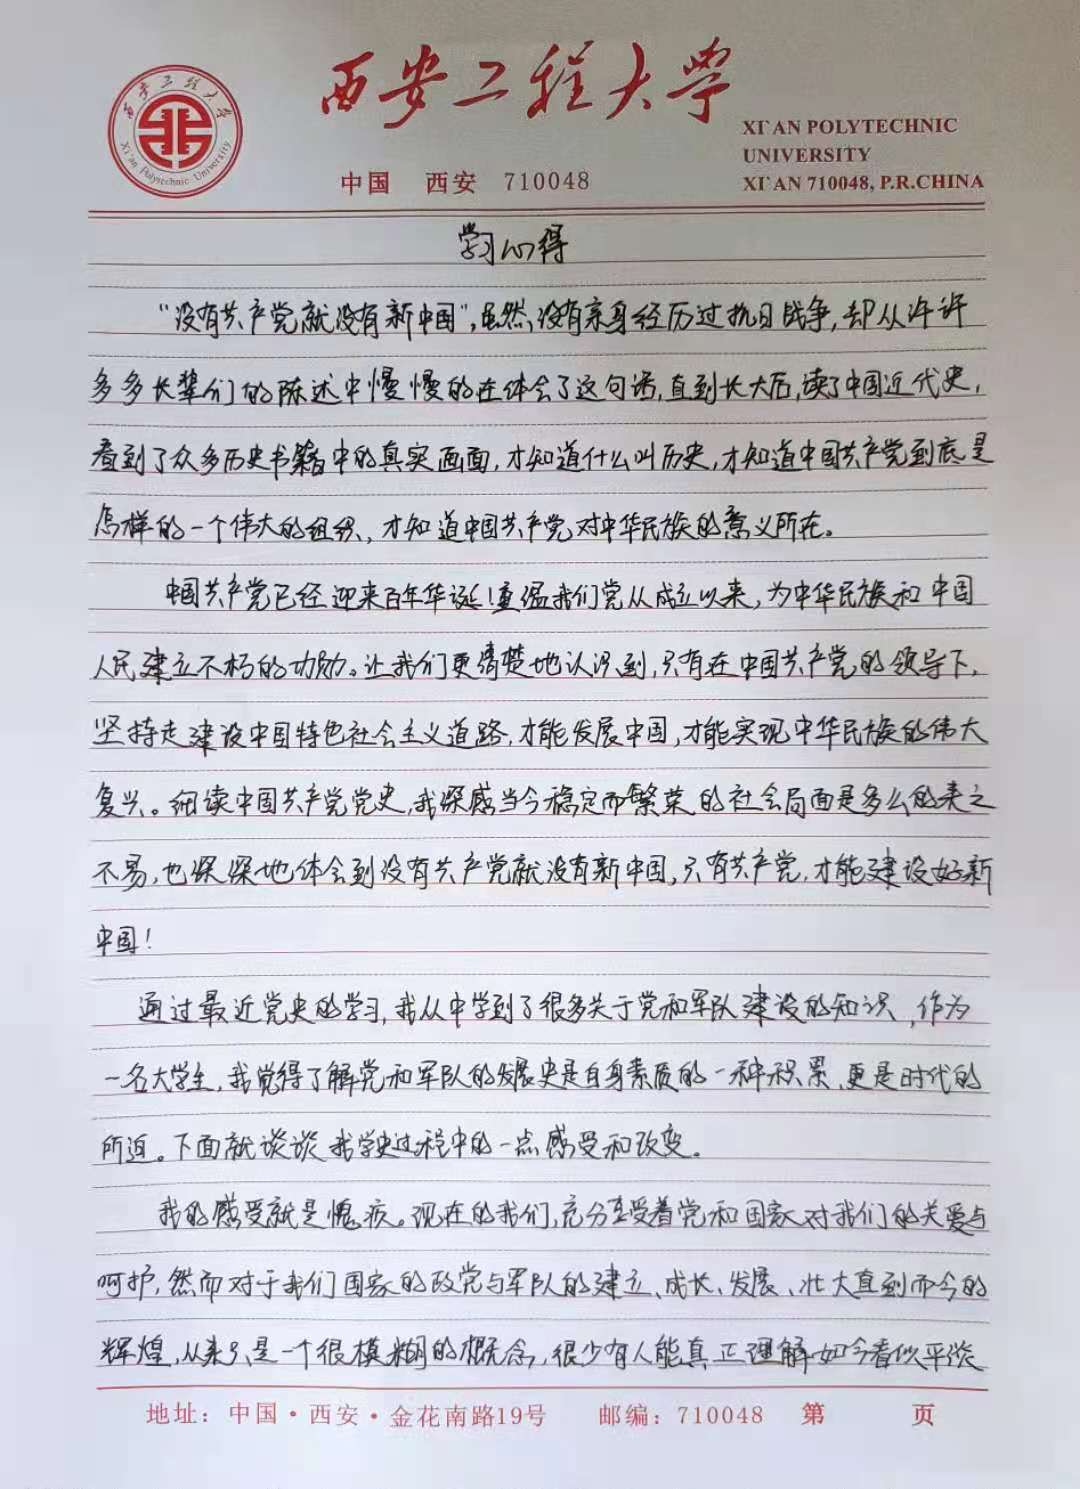 西安工程大学
西安工程大学
Xi'an Polytechnic University
XI'AN POLYTECHNIC
UNIVERSITY
中国 西安 710048
XI'AN 710048, P.R.CHINA
学习心得
“没有共产党就没有新中国”,虽然没有亲身经历过抗日战争,却从许许
多多长辈们的陈述中慢慢的在体会了这句话,直到长大后,读了中国近代史,
看到了众多历史书籍中的真实画面,才知道什么叫历史,才知道中国共产党到底是
怎样的一个伟大的组织,才知道中国共产党对中华民族的意义所在。
中国共产党已经迎来百年华诞!重温我们党从成立以来,为中华民族和中国
人民建立不朽的功勋。让我们更清楚地认识到,只有在中国共产党的领导下,
坚持走建设中国特色社会主义道路,才能发展中国,才能实现中华民族的伟大
复兴。细读中国共产党党史,我深感当今稳定而繁荣的社会局面是多么的来之
不易,也深深地体会到没有共产党就没有新中国,只有共产党,才能建设好新
中国!
通过最近党史的学习,我从中学到了很多关于党和军队建设的知识,作为
一名大学生,我觉得了解党和军队的发展史是自身素质的一种积累,更是时代的
所迫。下面就谈谈我学史过程中的一点感受和改变。
我的感受就是愧疚。现在的我们,充分享受着党和国家对我们的关爱与
呵护,然而对于我们国家的政党与军队的建立、成长、发展、壮大直到而今的
辉煌,从来只是一个很模糊的概念,很少有人能真正理解如今看似平淡
地址:中国·西安·金花南路19号 邮编:710048 第 页